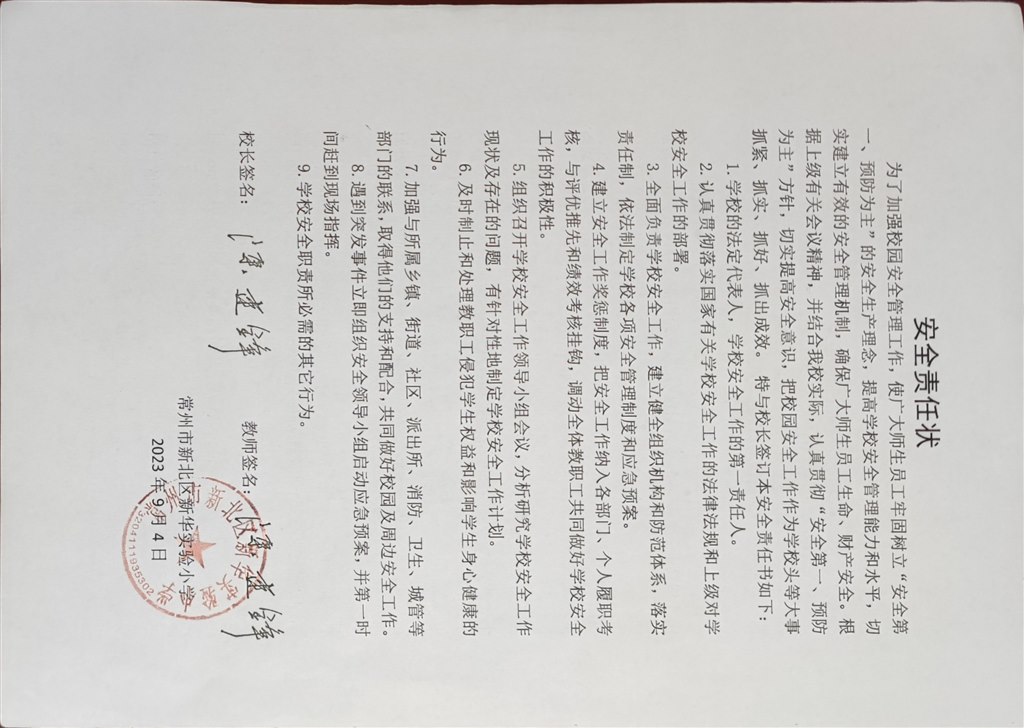 安全责任状
为了加强校园安全管理工作，使广大师生员工牢固树立“安全第
一、预防为主”的安全生产理念，提高学校安全管理能力和水平，切
实建立有效的安全管理机制，确保广大师生员工生命、财产安全。根
据上级有关会议精神，并结合我校实际，认真贯彻“安全第一、预防
为主”方针，切实提高安全意识，把校园安全工作作为学校头等大事
抓紧、抓实、抓好、抓出成效。特与校长签订本安全责任书如下：
1. 学校的法定代表人，学校安全工作的第一责任人。
2. 认真贯彻落实国家有关学校安全工作的法律法规和上级对学
校安全工作的部署。
3. 全面负责学校安全工作，建立健全组织机构和防范体系，落实
责任制，依法制定学校各项安全管理制度和应急预案。
4. 建立安全工作奖惩制度，把安全工作纳入各部门、个人履职考
核，与评优推先和绩效考核挂钩，调动全体教职工共同做好学校安全
工作的积极性。
5. 组织召开学校安全工作领导小组会议，分析研究学校安全工作
现状及存在的问题，有针对性地制定学校安全工作计划。
6. 及时制止和处理教职工侵犯学生权益和影响学生身心健康的
行为。
7. 加强与所属乡镇、街道、社区、派出所、消防、卫生、城管等
部门的联系，取得他们的支持和配合，共同做好校园及周边安全工作。
8. 遇到突发事件立即组织安全领导小组启动应急预案，并第一时
间赶到现场指挥。
9. 学校安全职责所必需的其它行为。
校长签名： 教师签名：
常州市新北区新华实验小学
2023 年 9 月 4 日